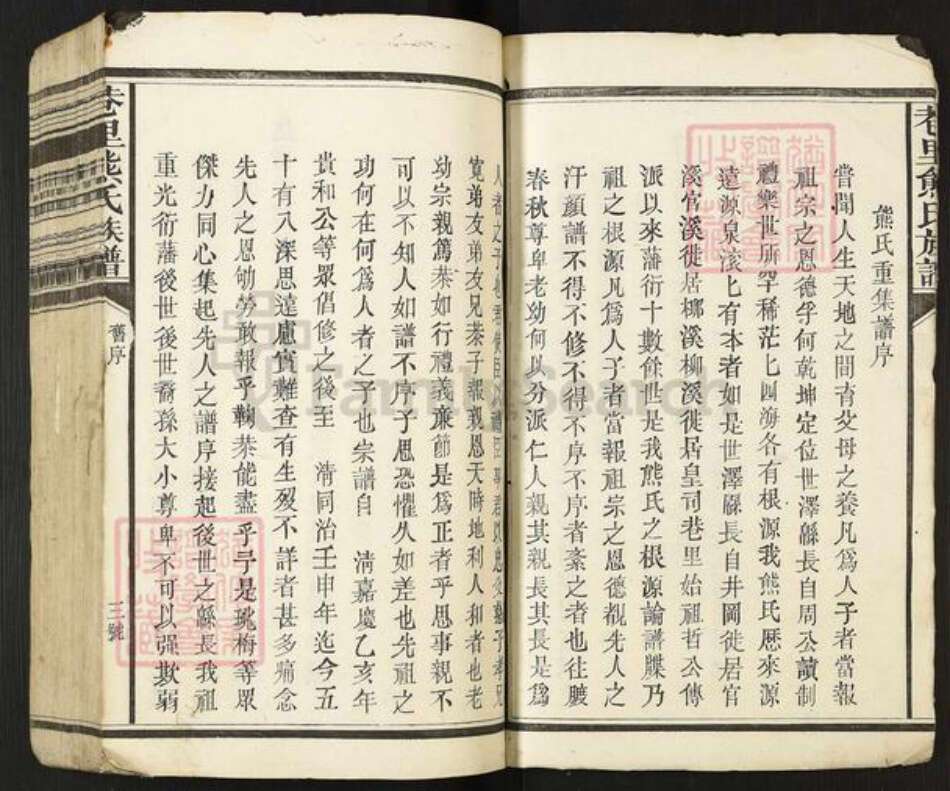 巷里熊氏族譜
熊氏重集譜序
嘗聞人生天地之間有父母之養凡爲人子者當報
祖宗之恩德孚何乾坤定位世澤緜長自周公讀制
禮樂世所罕稀茫匕四海各有根源我熊氏歷來源
遠源泉滚匕有本者如是世澤緜長自井岡徙居官
溪官溪徙居梛溪柳溪徙居皇司巷里始祖哲公傳
派以來藩衍十數餘世是我熊氏之根源論譜牒乃
祖之根源凡爲人子者當報祖宗之恩德覩先人之
汗顔譜不得不修不得不序不序者紊之者也往牒
春秋尊卑老幼何以分派仁人親其親長其長是爲
寛弟友弟友兄恭子報親恩天時地利人和者也老
幼宗親篤恭如行禮義亷節是爲正者乎思事親不
可以不知人如譜不序子思恐懼久如差也先祖之
功何在何爲人者之子也宗譜自 清嘉慶乙亥年
貴和公等眾倡修之後至 清同治壬申年迄今五
十有八深思遠慮實難查有生歿不詳者甚多痛念
先人之恩劬勞敢報乎鞠恭能盡乎于是珧梅等眾
傑力同心集起先人之譜序接起後世之緜長我祖
重光衍藩後世後世裔孫大小尊卑不可以强欺弱
巷里熊氏族譜
舊序
三號
FamilySearch